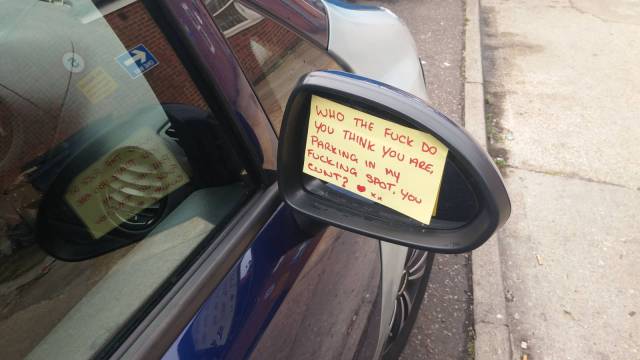 WHO THE FUCK DO
YOU THINK YOU ARE,
PARKING IN MY
FUCKING SPOT. YOU
CUNT? ❤ xx